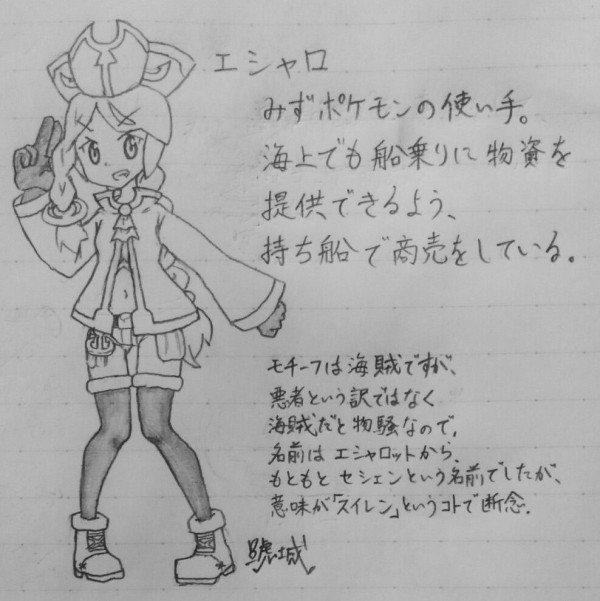 エシャロ
みずポケモンの使い手。
海上でも船乗りに物資を
提供できるよう、
持ち船で商売をしている。
モチーフは海賊ですが、
悪者という訳ではなく
海賊だと物騒なので、
名前はエシャロットから。
もともとセシェンという名前でしたが、
意味が「スイレン」というコトで断念。